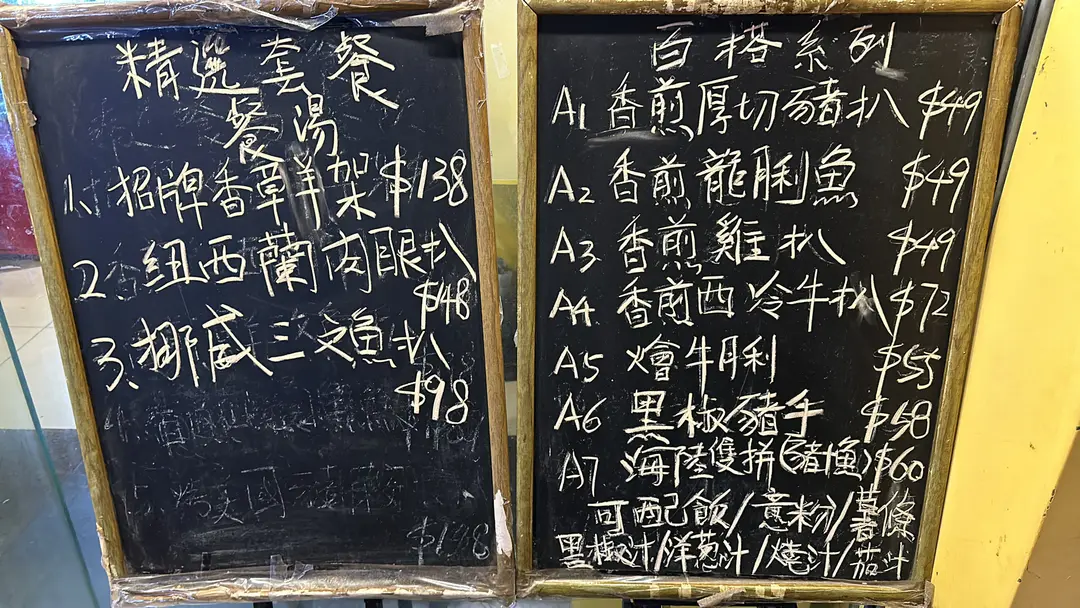 精選套餐
餐湯
1、招牌香草羊架 $138
2、紐西蘭肉眼扒
$148
3、挪威三文魚扒
$98
$198
百搭系列
A1 香煎厚切豬扒 $49
A2 香煎龍脷魚 $49
A3 香煎雞扒 $49
A4 香煎西冷牛扒 $72
A5 燴牛脷 $55
A6 黑椒豬手 $58
A7 海陸雙拼(豬魚) $60
可配飯/意粉/薯條
黑椒汁/洋蔥汁/燒汁/茄汁